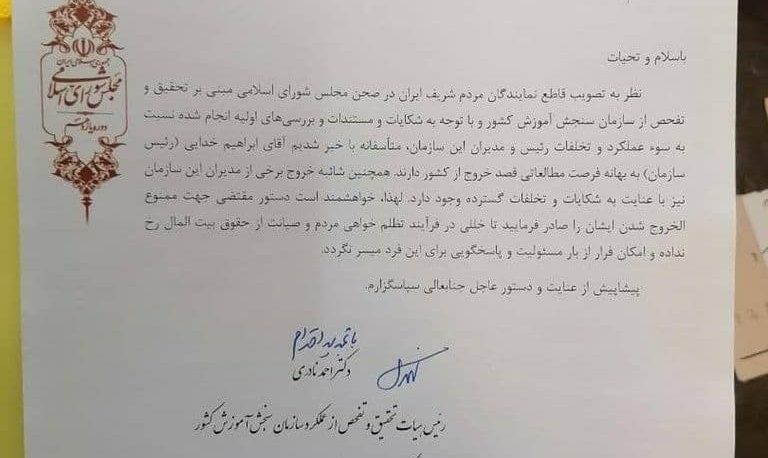 جمهوری اسلامی ایران
مجلس شورای اسلامی
دوره یازدهم
باسلام و تحیات
نظر به تصویب قاطع نمایندگان مردم شریف ایران در صحن مجلس شورای اسلامی مبنی بر تحقیق و
تفحص از سازمان سنجش آموزش کشور و با توجه به شکایات و مستندات و بررسی‌های اولیه انجام شده نسبت
به سوء عملکرد و تخلفات رئیس و مدیران این سازمان، متأسفانه با خبر شدیم آقای ابراهیم خدایی (رئیس
سازمان) به بهانه فرصت مطالعاتی قصد خروج از کشور دارند. همچنین شائبه خروج برخی از مدیران این سازمان
نیز با عنایت به شکایات و تخلفات گسترده وجود دارد. لهذا، خواهشمند است دستور مقتضی جهت ممنوع
الخروج) شدن ایشان را صادر فرمایید تا خللی در فرآیند تظلم خواهی مردم و صیانت از حقوق بیت المال رخ
نداده و امکان فرار از بار مسئولیت و پاسخگویی برای این فرد میسر نگردد.
پیشاپیش از عنایت و دستور عاجل جنابعالی سپاسگزارم.
با تجدید احترام
دکتر احمد نادری
رئیس هیات تحقیق و تفحص از عملکرد سازمان سنجش آموزش کشور